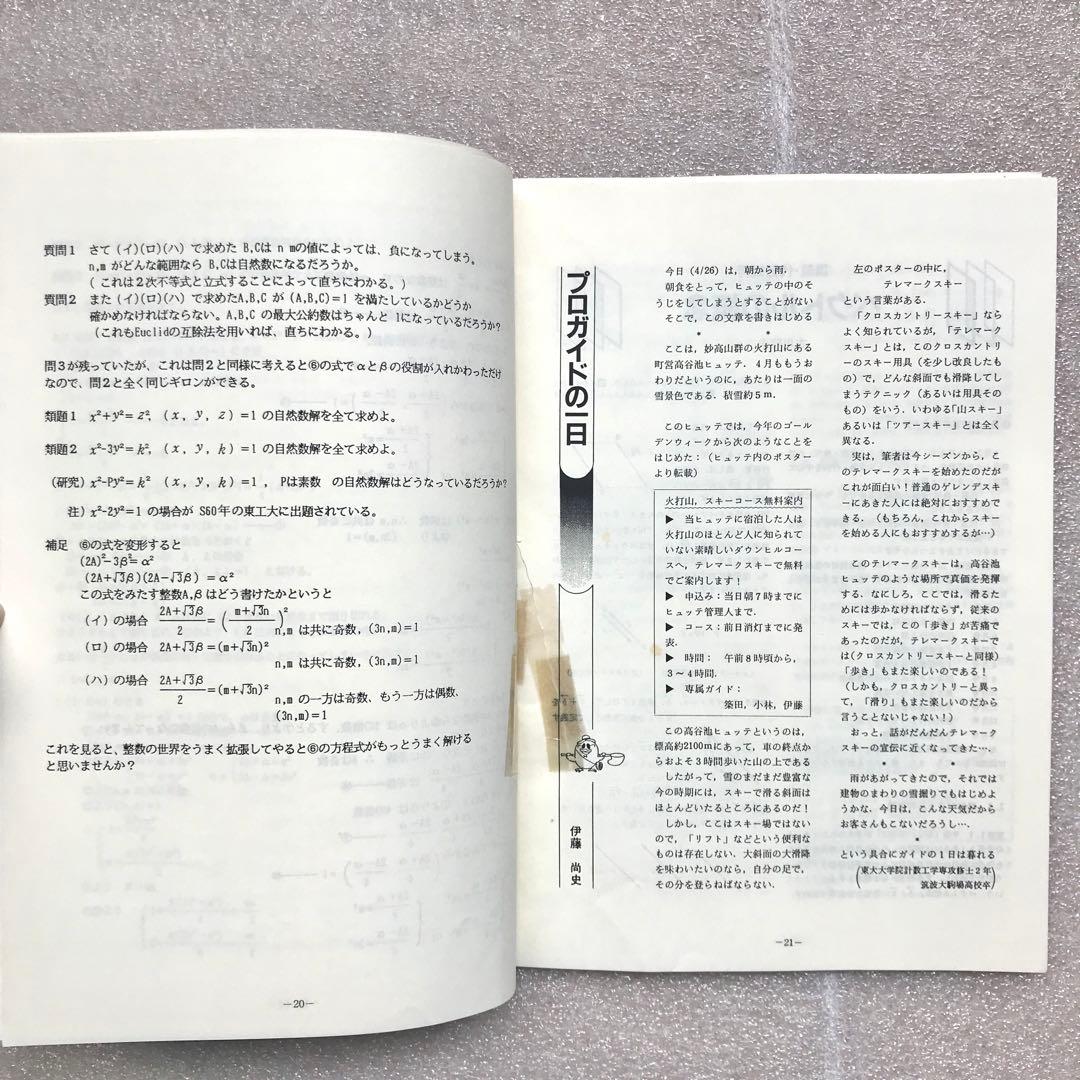 質問1 さて (イ)(ロ)(ハ) で求めた B,Cは n mの値によっては、負になってしまう。
n,m がどんな範囲なら B,Cは自然数になるだろうか。
( これは2次不等式と立式することによって直ちにわかる。)
質問2 また (イ)(ロ)(ハ) で求めたA,B,C が (A,B,C)=1 を満たしているかどうか
確かめなければならない。A,B,C の最大公約数はちゃんと 1になっているだろうか?
(これもEuclidの互除法を用いれば、直ちにわかる。)
問3が残っていたが、これは問2と同様に考えると⑥の式でαとβの役割が入れかわっただけ
なので、問2と全く同じギロンができる。
類題1 x²+y²= z², (x, y, z)=1 の自然数解を全て求めよ。
類題2 x²-3y²= k², (x, y, k)=1 の自然数解を全て求めよ。
(研究) x²-Py²= k² (x, y, k)=1 , Pは素数 の自然数解はどうなっているだろうか?
注) x²-2y²=1 の場合が S60年の東工大に出題されている。
補足 ⑥の式を変形すると
(2A)²-3β²=α²
(2A+√3β)(2A-√3β)=α²
この式をみたす整数A,β はどう書けたかというと
(イ)の場合 (2A+√3β)/2 = ((m+√3n)/2)² n,m は共に奇数, (3n,m)=1
(ロ)の場合 2A+√3β=(m+√3n)²
n,m は共に奇数, (3n,m)=1
(ハ)の場合 (2A+√3β)/2 =(m+√3n)² n,m の一方は奇数、もう一方は偶数、
(3n,m)=1
これを見ると、整数の世界をうまく拡張してやると⑥の方程式がもっとうまく解ける
と思いませんか?
−20−
プロガイドの一日
伊藤 尚史
今日(4/26)は,朝から雨,
朝食をとって,ヒュッテの中のそ
うじをしてしまうとすることがない
そこで,この文章を書きはじめる
* *
ここは,妙高山群の火打山にある
町営高谷池ヒュッテ.4月ももうお
わりだというのに,あたりは一面の
雪景色である.積雪約5m.
このヒュッテでは,今年のゴール
デンウィークから次のようなことを
はじめた:(ヒュッテ内のポスター
より転載)
火打山,スキーコース無料案内
▶ 当ヒュッテに宿泊した人は
火打山のほとんど人に知られて
いない素晴しいダウンヒルコー
スへ,テレマークスキーで無料
でご案内します!
▶ 申込み:当日朝7時までに
ヒュッテ管理人まで.
▶ コース:前日消灯までに発
表.
▶ 時間: 午前8時頃から,
3〜4時間.
▶ 専属ガイド:
築田,小林,伊藤
この高谷池ヒュッテというのは,
標高約2100mにあって,車の終点か
らおよそ3時間歩いた山の上である
したがって,雪のまだまだ豊富な
今の時期には,スキーで滑る斜面は
ほとんどいたるところにあるのだ!
しかし,ここはスキー場ではない
ので,「リフト」などという便利な
ものは存在しない.大斜面の大滑降
を味わいたいのなら,自分の足で,
その分を登らねばならない.
左のポスターの中に,
テレマークスキー
という言葉がある.
「クロスカントリースキー」なら
よく知られているが,「テレマーク
スキー」とは,このクロスカントリ
ーのスキー用具(を少し改良したも
の)で,どんな斜面でも滑降してし
まうテクニック(あるいは用具その
もの)をいう.いわゆる「山スキー」
あるいは「ツアースキー」とは全く
異なる.
実は,筆者は今シーズンから,こ
のテレマークスキーを始めたのだが
これが面白い!普通のゲレンデスキ
ーにあきた人には絶対におすすめで
きる.(もちろん,これからスキー
を始める人にもおすすめするが…)
このテレマークスキーは,高谷池
ヒュッテのような場所で真価を発揮
する.なにしろ,ここでは,滑るた
めには歩かなければならず,従来の
スキーでは,この「歩き」が苦痛で
あったのだが,テレマークスキーで
は(クロスカントリースキーと同様)
「歩き」もまた楽しいのである!
(しかも,クロスカントリーと異っ
て,「滑り」もまた楽しいのだから
言うことないじゃない!)
おっと,話がだんだんテレマーク
スキーの宣伝に近くなってきた….
* *
雨があがってきたので,それでは
建物のまわりの雪掘りでもはじめよ
うかな.今日は,こんな天気だから
お客さんもこないだろうし….
*
という具合にガイドの1日は暮れる
(東大大学院計数工学専攻修士2年
筑波大駒場高校卒)
−21−